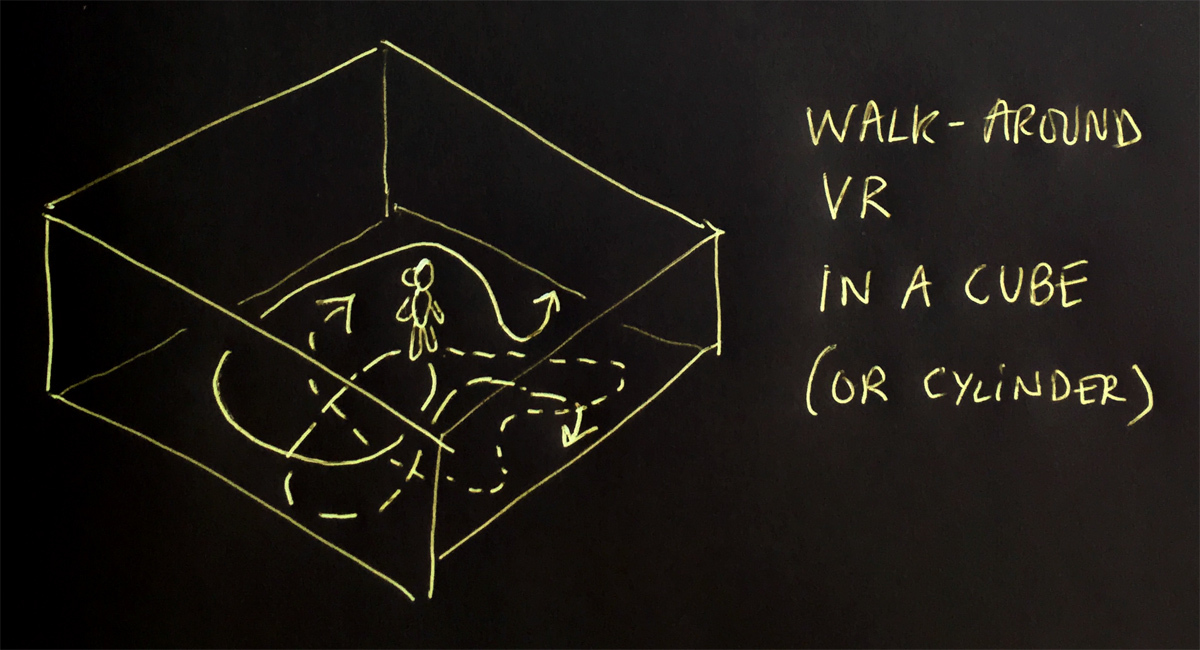 WALK-AROUND
VR
IN A CUBE
(OR CYLINDER)